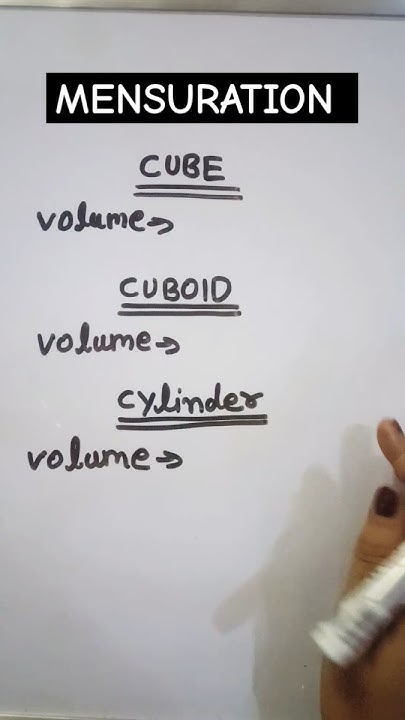 MENSURATION
CUBE
volume→
CUBOID
volume→
Cylinder
volume→